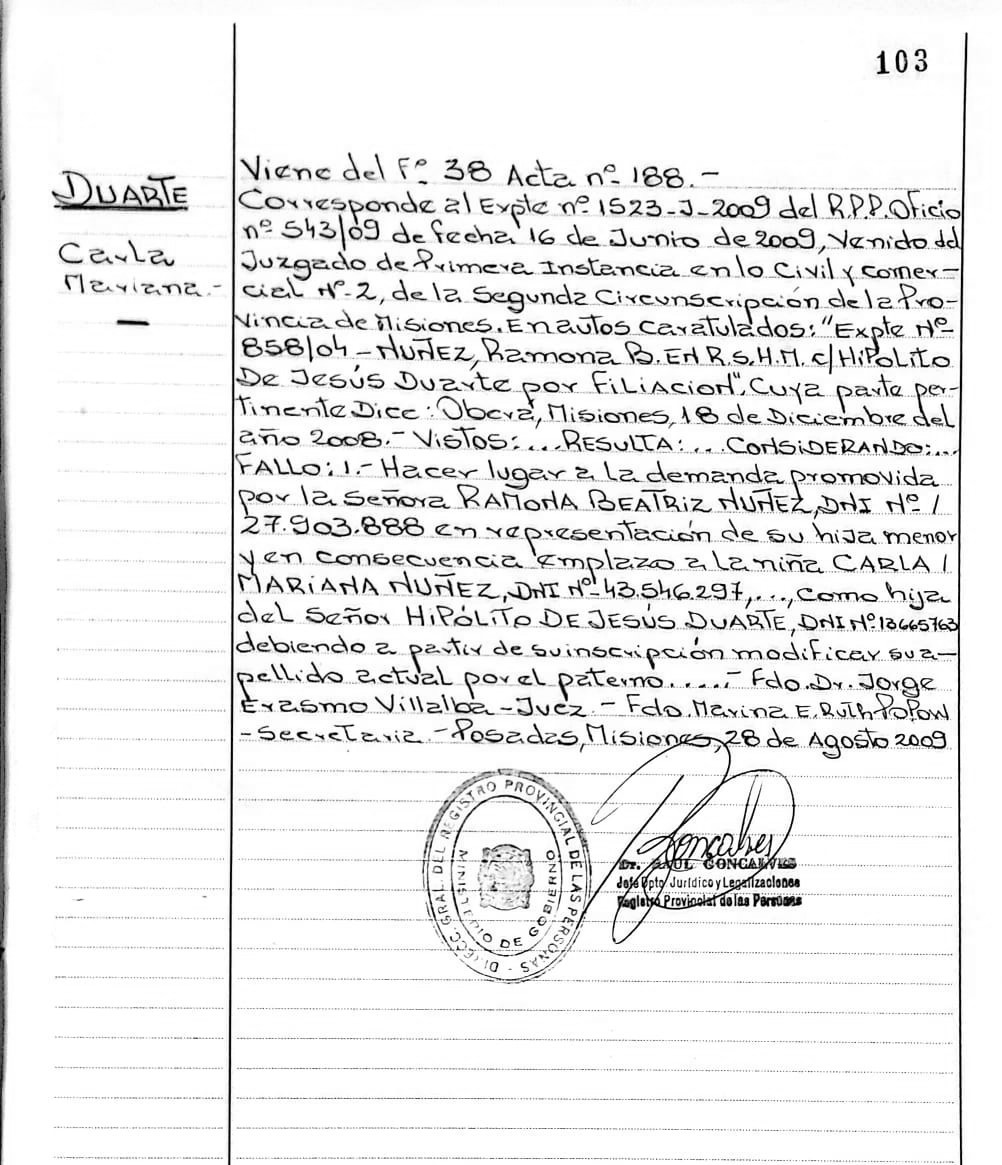 103
DUARTE
Carla
Mariana.-
Viene del Fº 38 Acta nº 188.-
Corresponde al Expte nº 1523-J-2009 del R.P.P. Oficio
nº 543/09 de fecha 16 de Junio de 2009, Venido del
Juzgado de Primera Instancia en lo Civil y comer-
cial Nº 2, de la Segunda Circunscripción de la Pro-
vincia de Misiones. En autos caratulados: "Expte Nº
858/04 - NUÑEZ, Ramona B. EN R.S.H.M. c/ HiPoLito
De Jesús Duarte por FiLiacion". Cuya parte per-
tinente Dice: Oberá, Misiones, 18 de Diciembre del
año 2008.- Vistos:... RESULTA:... CONSIDERANDO:...
FALLO: 1.- Hacer lugar a la demanda promovida
por la Señora RAMONA BEATRIZ NUÑEZ, DNI Nº /
27.903.888 en representación de su hija menor
y en consecuencia emplazo a la niña CARLA /
MARIANA NUÑEZ, DNI Nº 43.546.297,..., como hija
del Señor HIPÓLITO DE JESÚS DUARTE, DNI Nº 13665763
debiendo a partir de su inscripción modificar su a-
pellido actual por el paterno.....- Fdo. Dr. Jorge
Erasmo Villalba - Juez. - Fdo. Marina E. Ruth Popow
- Secretaria - Posadas, Misiones, 28 de Agosto 2009
DIRECC. GRAL. DEL REGISTRO PROVINCIAL DE LAS PERSONAS -
MINISTERIO DE GOBIERNO
Goncalves
Dr. RAUL GONCALVES
Jefe Dpto Jurídico y Legalizaciones
Registro Provincial de las Personas